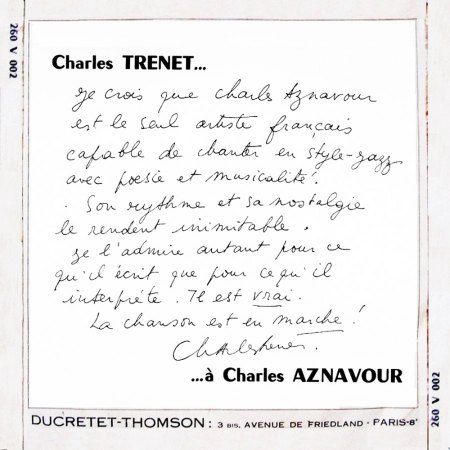 260 V 002
Charles TRENET...
Je crois que Charles Aznavour
est le seul artiste français
capable de chanter en style-jazz
avec poésie et musicalité.
. Son rythme et sa nostalgie
le rendent inimitable.
Je l'admire autant pour ce
qu'il écrit que pour ce qu'il
interprète. Il est vrai.
La chanson est en marche !
Charles Trenet.
...à Charles AZNAVOUR
260 V 002
DUCRETET-THOMSON : 3 BIS, AVENUE DE FRIEDLAND - PARIS-8e